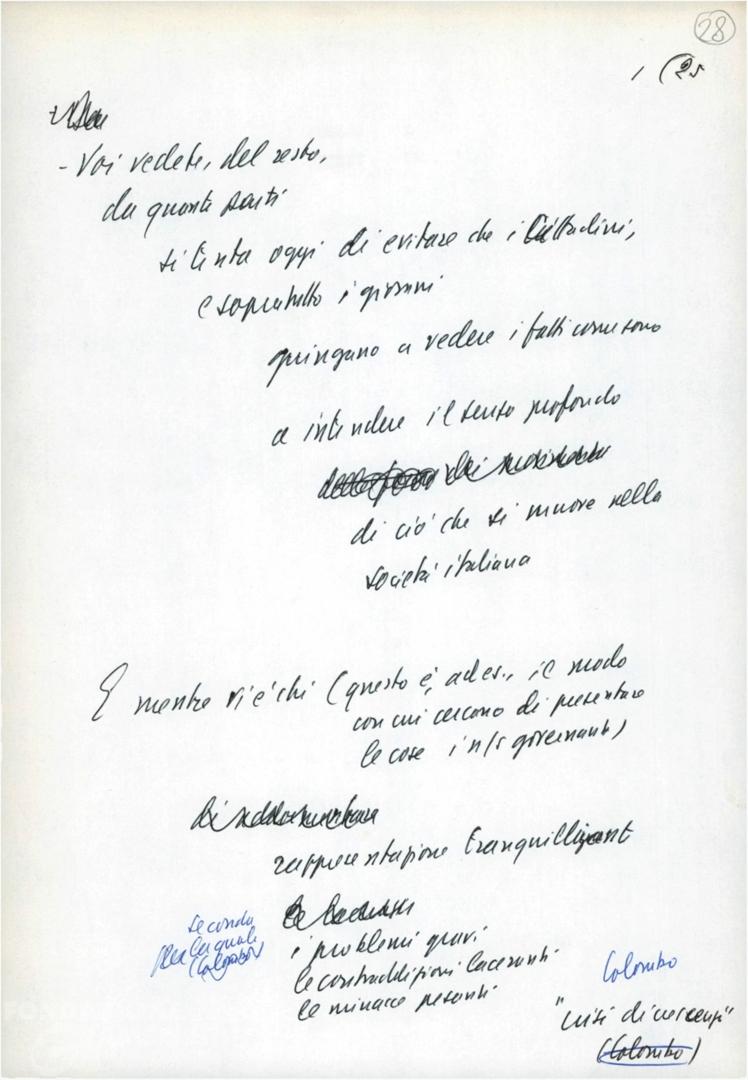 28
1 (25
- Voi vedete, del resto,
da quante parti
si tenta oggi di evitare che i cittadini,
e sopratutto i giovani
giungano a vedere i fatti come sono
a intendere il senso profondo
di ciò che si muove nella
società italiana
E mentre vi è chi (questo è, ad es., il modo
con cui cercano di presentare
le cose i n/s governanti)
rappresentazione tranquillizzante
secondo
la quale
(Colombo)
i problemi gravi
le contraddizioni laceranti
le minacce pesanti
Colombo
"crisi di crescenza"
(Colombo)